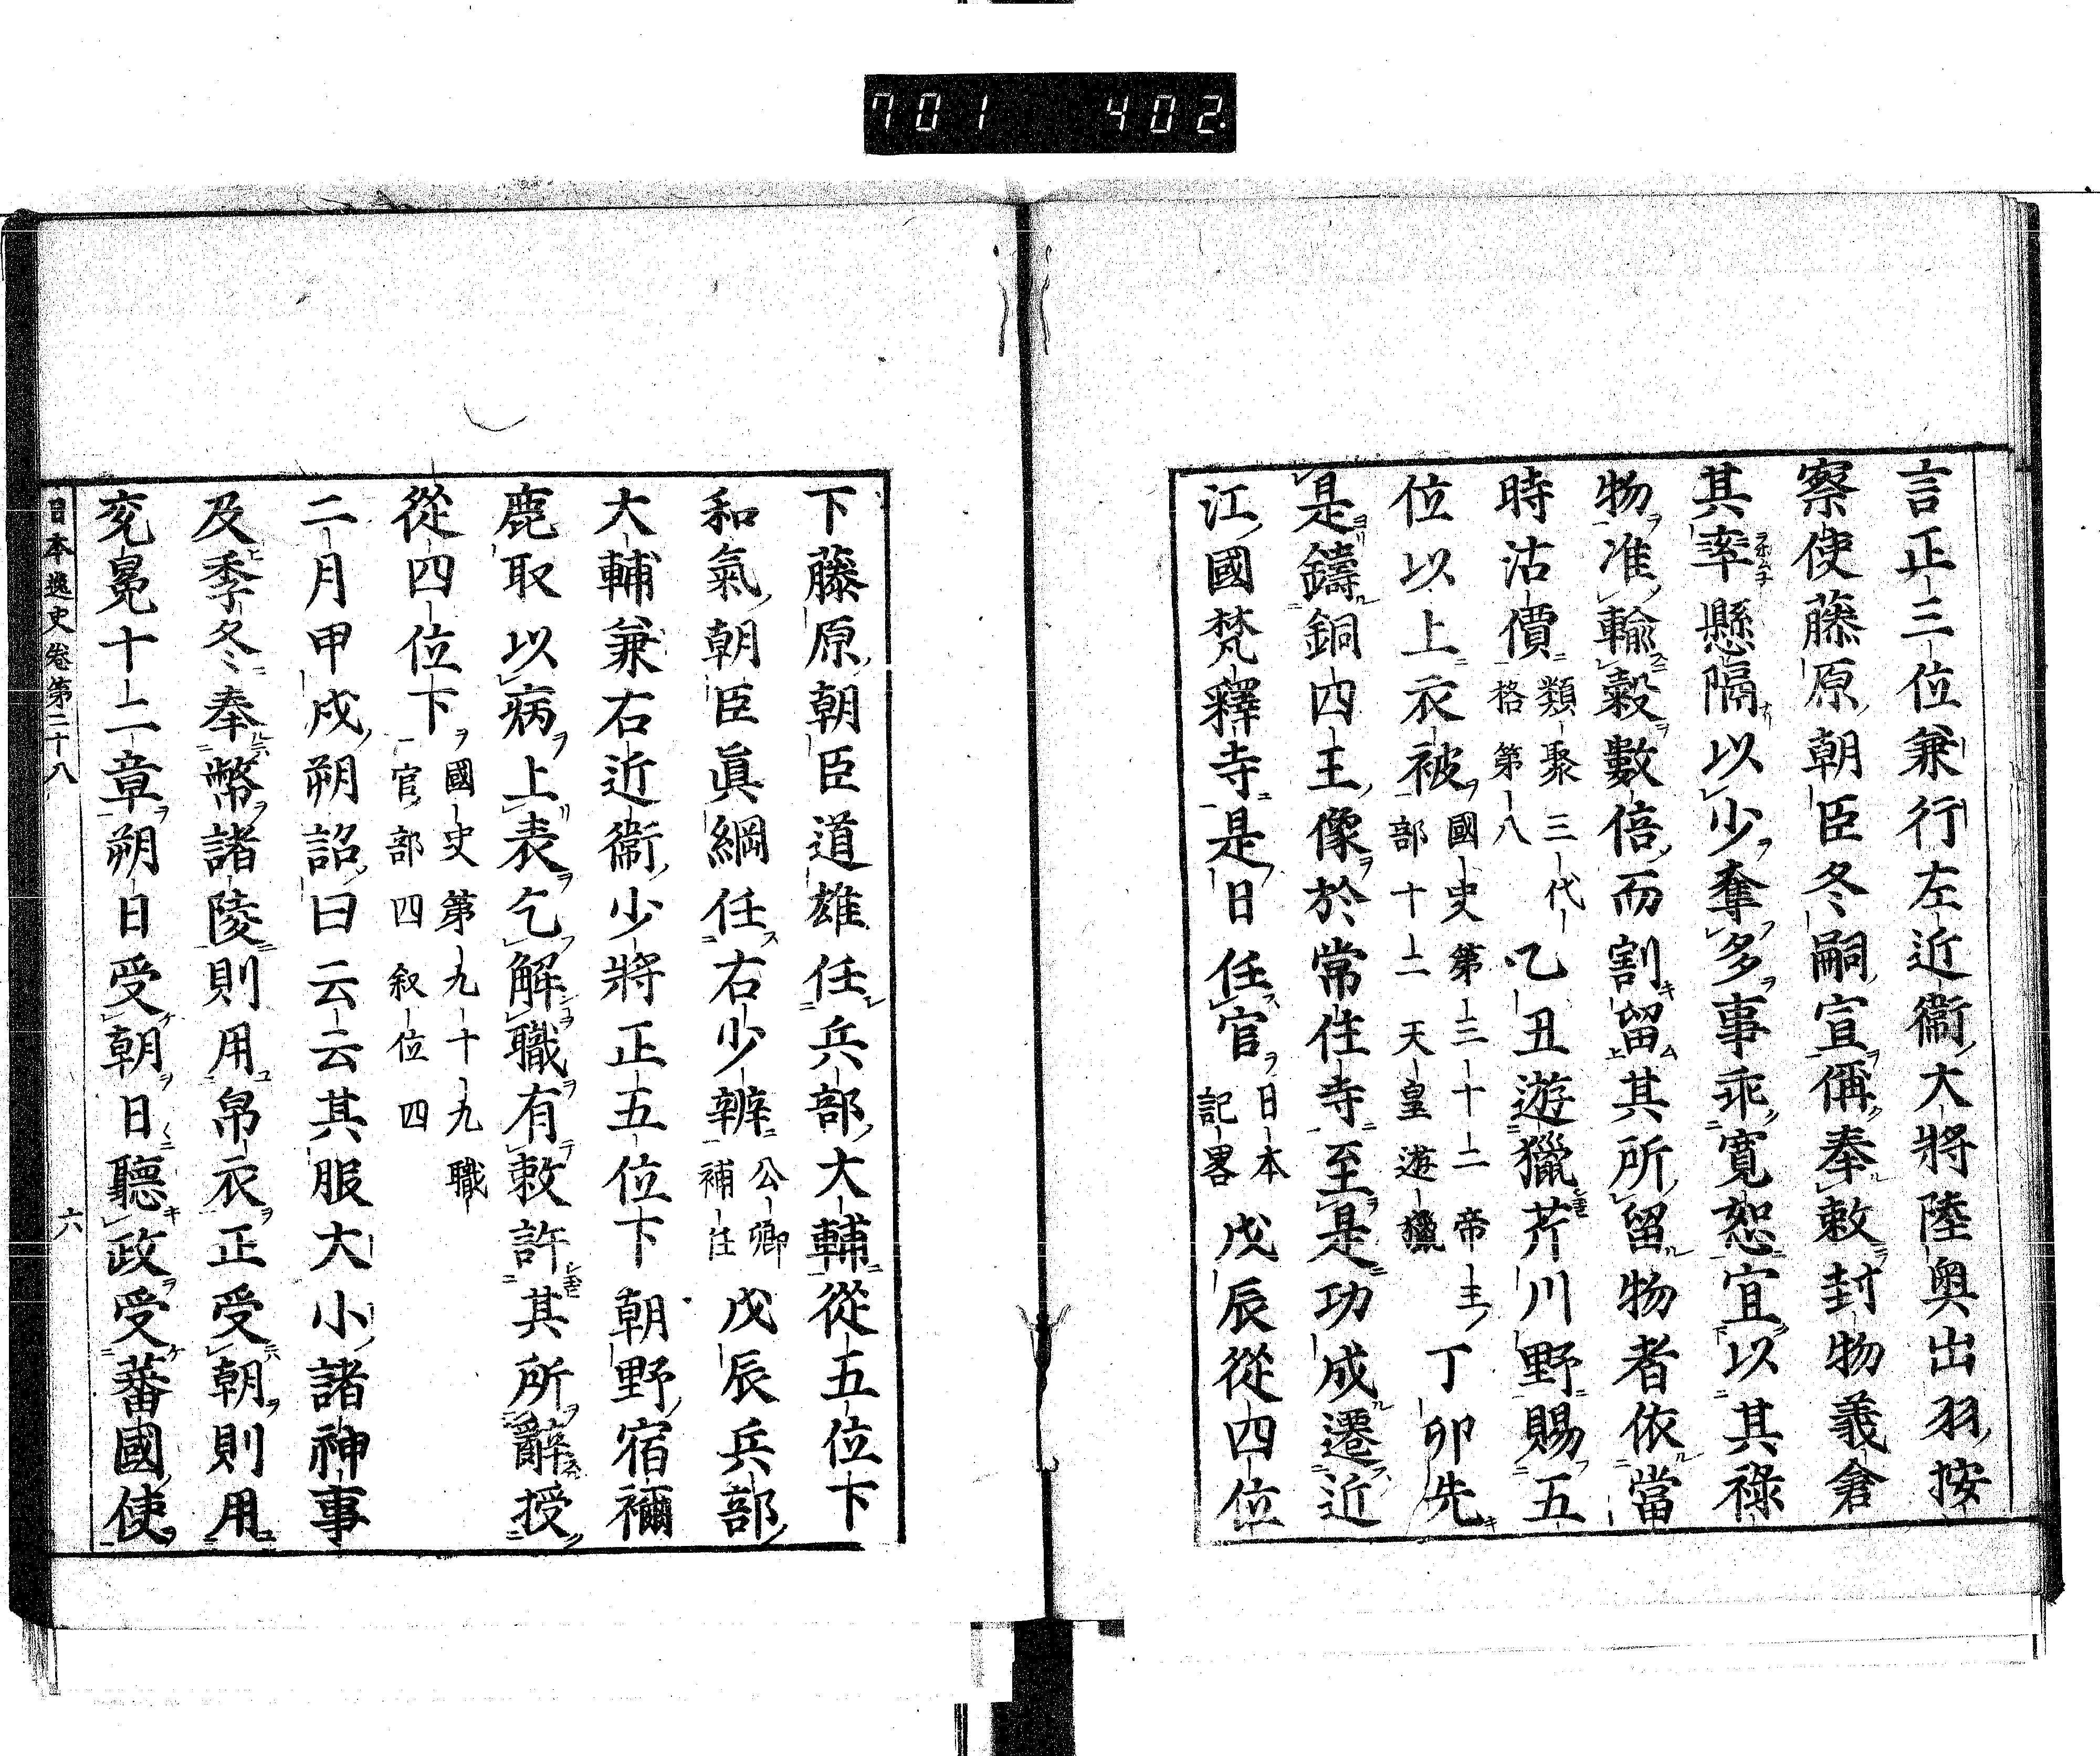 701 402.
言正三位兼行左近衞大將陸奥出羽按
察使藤原朝臣冬嗣宣偁奉敕封物義倉
其率懸隔以少奪多事乖寛恕宜以其祿
物准輸穀數倍而割留其所留物者依當
時沽價類聚三代格第八乙丑遊獵芹川野賜五
位以上衣被國史第三十二帝王部十二天皇遊獵丁卯先
是鑄銅四王像於常住寺至是功成遷近
江國梵釋寺是日任官日本記畧戊辰從四位
下藤原朝臣道雄任兵部大輔從五位下
和氣朝臣眞綱任右少辨公卿補任戊辰兵部
大輔兼右近衞少將正五位下朝野宿禰
鹿取以病上表乞解職有敕許其所辭授
從四位下國史第九十九職官部四叙位四
二月甲戌朔詔曰云云其服大小諸神事
及季冬奉幣諸陵則用帛衣正受朝則用
兖冕十二章朔日受朝日聽政受蕃國使
日本逸史卷第二十八 六